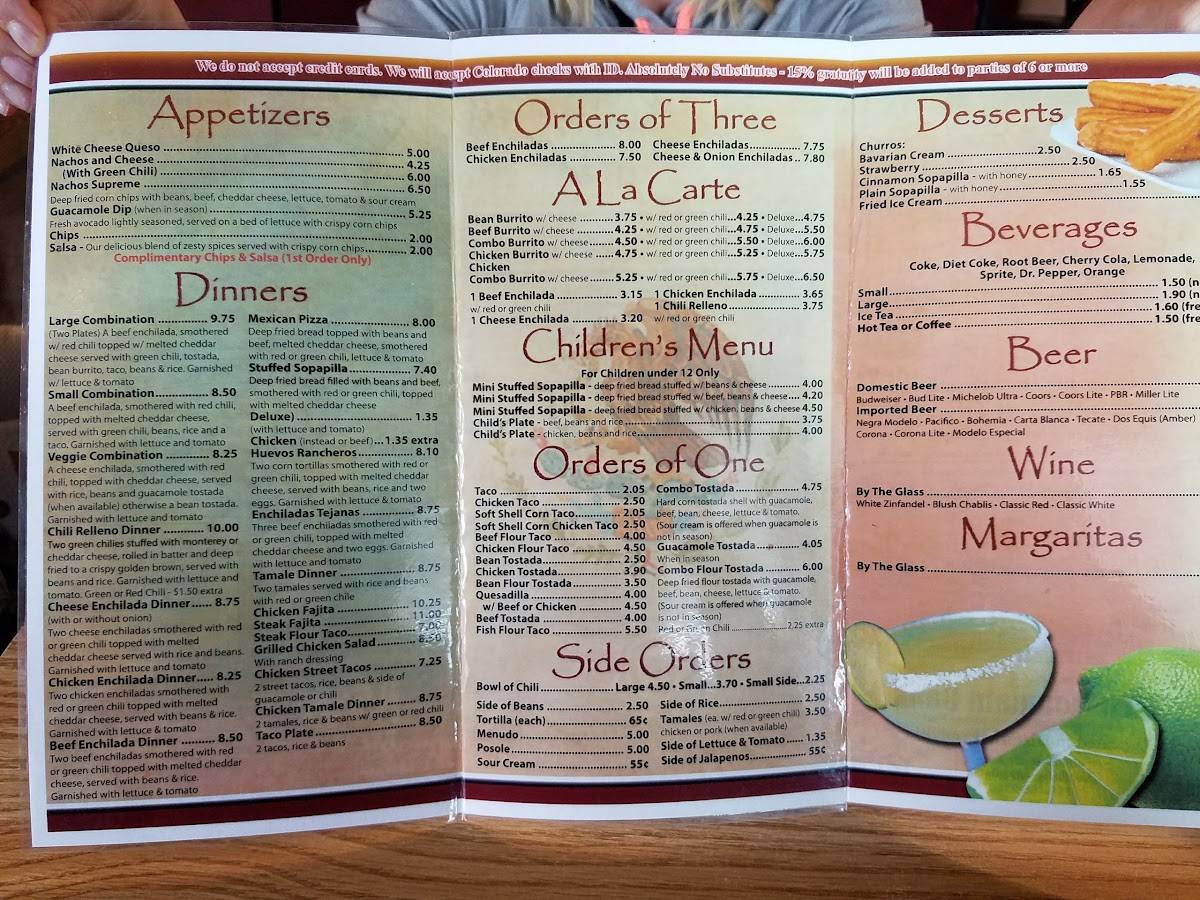 We do not accept credit cards. We will accept Colorado checks with ID. Absolutely No Substitutes - 15% gratuity will be added to parties of 6 or more
Appetizers
White Cheese Queso 5.00
Nachos and Cheese 4.25
(With Green Chili) 6.00
Nachos Supreme 6.50
Deep fried corn chips with beans, beef, cheddar cheese, lettuce, tomato & sour cream
Guacamole Dip (when in season) 5.25
Fresh avocado lightly seasoned, served on a bed of lettuce with crispy corn chips
Chips 2.00
Salsa - Our delicious blend of zesty spices served with crispy corn chips 2.00
Complimentary Chips & Salsa (1st Order Only)
Dinners
Large Combination 9.75
(Two Plates) A beef enchilada, smothered
w/ red chili topped w/ melted cheddar
cheese served with green chili, tostada,
bean burrito, taco, beans & rice. Garnished
w/ lettuce & tomato
Small Combination 8.50
A beef enchilada, smothered with red chili,
topped with melted cheddar cheese,
served with green chili, beans, rice and a
taco. Garnished with lettuce and tomato
Veggie Combination 8.25
A cheese enchilada, smothered with red
chili, topped with cheddar cheese, served
with rice, beans and guacamole tostada
(when available) otherwise a bean tostada.
Garnished with lettuce and tomato
Chili Relleno Dinner 10.00
Two green chilies stuffed with monterey or
cheddar cheese, rolled in batter and deep
fried to a crispy golden brown, served with
beans and rice. Garnished with lettuce and
tomato. Green or Red Chili - $1.50 extra
Cheese Enchilada Dinner 8.75
(with or without onion)
Two cheese enchiladas smothered with red
or green chili topped with melted
cheddar cheese served with rice and beans.
Garnished with lettuce and tomato
Chicken Enchilada Dinner 8.25
Two chicken enchiladas smothered with
red or green chili topped with melted
cheddar cheese, served with beans & rice.
Garnished with lettuce & tomato
Beef Enchilada Dinner 8.50
Two beef enchiladas smothered with red
or green chili topped with melted cheddar
cheese, served with beans & rice.
Garnished with lettuce & tomato
Mexican Pizza 8.00
Deep fried bread topped with beans and
beef, melted cheddar cheese, smothered
with red or green chili, lettuce & tomato
Stuffed Sopapilla 7.40
Deep fried bread filled with beans and beef,
smothered with red or green chili, topped
with melted cheddar cheese
Deluxe) 1.35
(with lettuce and tomato)
Chicken (instead or beef)...1.35 extra
Huevos Rancheros 8.10
Two corn tortillas smothered with red or
green chili, topped with melted cheddar
cheese, served with beans, rice and two
eggs. Garnished with lettuce & tomato
Enchiladas Tejanas 8.75
Three beef enchiladas smothered with red
or green chili, topped with melted
cheddar cheese and two eggs. Garnished
with lettuce and tomato
Tamale Dinner 8.75
Two tamales served with rice and beans
with red or green chile
Chicken Fajita 10.25
Steak Fajita 11.00
Steak Flour Taco 7.00
Grilled Chicken Salad 8.50
With ranch dressing
Chicken Street Tacos 7.25
2 street tacos, rice, beans & side of
guacamole or chili
Chicken Tamale Dinner 8.75
2 tamales, rice & beans w/ green or red chili
Taco Plate 8.50
2 tacos, rice & beans
Orders of Three
Beef Enchiladas 8.00 Cheese Enchiladas 7.75
Chicken Enchiladas 7.50 Cheese & Onion Enchiladas 7.80
A La Carte
Bean Burrito w/ cheese 3.75 • w/ red or green chili...4.25 • Deluxe...4.75
Beef Burrito w/ cheese 4.25 • w/ red or green chili...4.75 • Deluxe...5.50
Combo Burrito w/ cheese 4.50 • w/ red or green chili...5.50 • Deluxe...6.00
Chicken Burrito w/ cheese 4.75 • w/ red or green chili...5.25 • Deluxe...5.75
Chicken
Combo Burrito w/ cheese 5.25 • w/ red or green chili...5.75 • Deluxe...6.50
1 Beef Enchilada 3.15 1 Chicken Enchilada 3.65
w/ red or green chili 1 Chili Relleno 3.75
1 Cheese Enchilada 3.20 w/ red or green chili
Children's Menu
For Children under 12 Only
Mini Stuffed Sopapilla - deep fried bread stuffed w/ beans & cheese 4.00
Mini Stuffed Sopapilla - deep fried bread stuffed w/ beef, beans & cheese 4.20
Mini Stuffed Sopapilla - deep fried bread stuffed w/ chicken, beans & cheese 4.50
Child's Plate - beef, beans and rice 3.75
Child's Plate - chicken, beans and rice 4.00
Orders of One
Taco 2.05
Chicken Taco 2.50
Soft Shell Corn Taco 2.05
Soft Shell Corn Chicken Taco 2.50
Beef Flour Taco 4.00
Chicken Flour Taco 4.50
Bean Tostada 2.50
Chicken Tostada 3.90
Bean Flour Tostada 3.50
Quesadilla 4.00
w/ Beef or Chicken 4.50
Beef Tostada 4.00
Fish Flour Taco 5.50
Combo Tostada 4.75
Hard corn tostada shell with guacamole,
beef, bean, cheese, lettuce & tomato.
(Sour cream is offered when guacamole is
not in season)
Guacamole Tostada 4.05
When in season
Combo Flour Tostada 6.00
Deep fried flour tostada with guacamole,
beef, bean, cheese, lettuce & tomato.
(Sour cream is offered when guacamole
is not in season)
Red or Green Chili 2.25 extra
Side Orders
Bowl of Chili Large 4.50 • Small...3.70 • Small Side...2.25
Side of Beans 2.50
Tortilla (each) 65¢
Menudo 5.00
Posole 5.00
Sour Cream 55¢
Side of Rice 2.50
Tamales (ea. w/ red or green chili) 3.50
chicken or pork (when available)
Side of Lettuce & Tomato 1.35
Side of Jalapenos 55¢
Desserts
Churros:
Bavarian Cream 2.50
Strawberry 2.50
Cinnamon Sopapilla - with honey 1.65
Plain Sopapilla - with honey 1.55
Fried Ice Cream
Beverages
Coke, Diet Coke, Root Beer, Cherry Cola, Lemonade,
Sprite, Dr. Pepper, Orange
Small 1.50 (n
Large 1.90 (n
Ice Tea 1.60 (fre
Hot Tea or Coffee 1.50 (fre
Beer
Domestic Beer
Budweiser • Bud Lite • Michelob Ultra • Coors • Coors Lite • PBR • Miller Lite
Imported Beer
Negra Modelo • Pacifico • Bohemia • Carta Blanca • Tecate • Dos Equis (Amber)
Corona • Corona Lite • Modelo Especial
Wine
By The Glass
White Zinfandel • Blush Chablis • Classic Red • Classic White
Margaritas
By The Glass